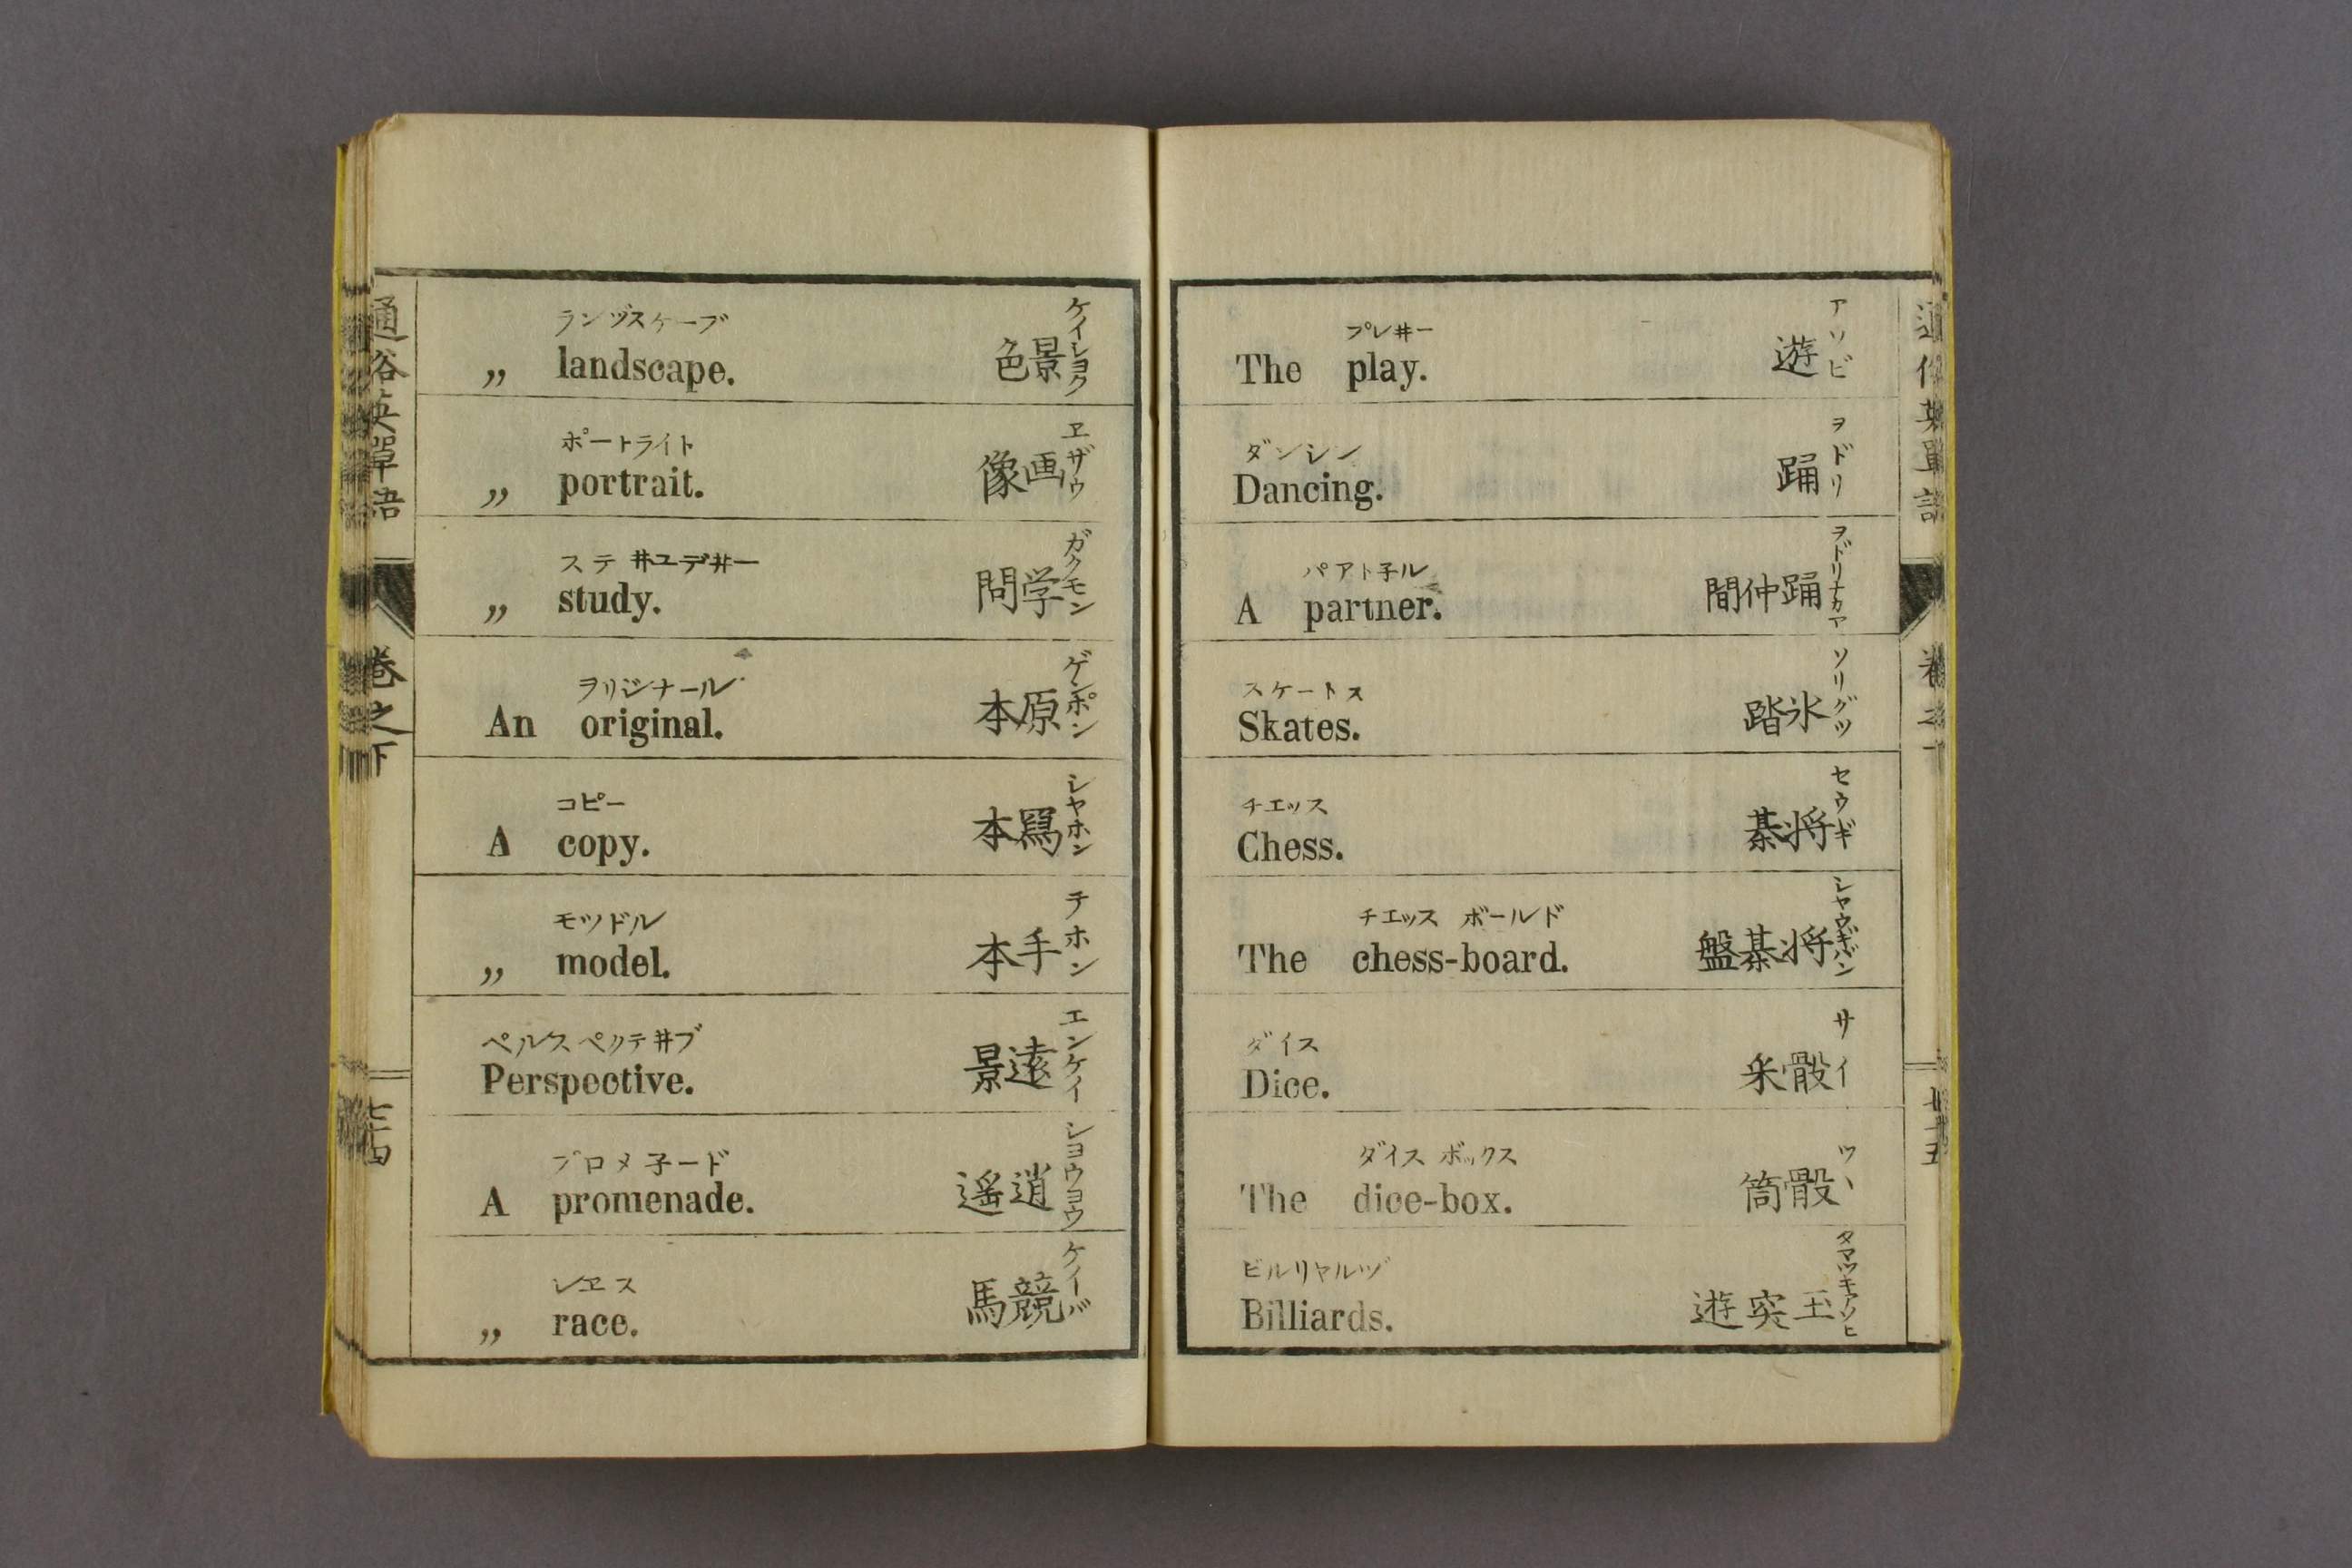 通俗英單語
卷之下
七十四
ランヅスケープ
ケイショク
„ landscape. 色景
ポートライト
ヱザウ
„ portrait. 像画
ステ井ユデ井ー
ガクモン
„ study. 問学
ヲリジナール
ゲンポン
An original. 本原
コピー
シヤホン
A copy. 本寫
モツドル
テホン
„ model. 本手
ペルスペクテ井ブ
エンケイ
Perspective. 景遠
プロメ子ード
ショウヨウ
A promenade. 遙逍
レヱス
ケイーバ
„ race. 馬競
プレ井ー
アソビ
The play. 遊
ダンシン
ヲドリ
Dancing. 踊
パアト子ル
ヲドリナカマ
A partner. 間仲踊
スケートス
ソリグツ
Skates. 踏氷
チエッス
セウギ
Chess. 棊将
チエッス ボールド
シヤウギバン
The chess-board. 盤棊将
ダイス
サイ
Dice. 采骰
ダイス ボックス
ツヽ
The dice-box. 筒骰
ビルリヤルヅ
タマツキアソヒ
Billiards. 遊突玉